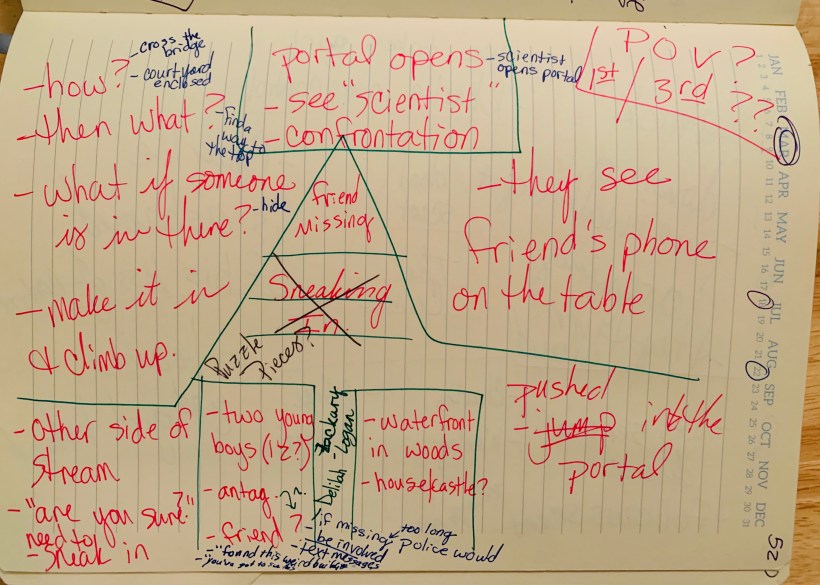 - how?
- cross the
bridge
- courtyard
enclosed
- then what?
- find a
way to
the top
- what if someone
is in there?
- hide
- make it in
& climb up.
portal opens
- scientist
opens portal
- see "scientist"
- confrontation
POV?
1st / 3rd ??
friend
missing
Sneaking
In
Puzzle
Pieces?
- they see
friend's phone
on the table
- other side of
stream
- "are you sure?"
need to
- sneak in
- two young
boys (12?)
- antag. ??
- friend?
Zackary
Logan
Delilah
- waterfront
in woods
- house/castle?
- if missing too long
Police would
be involved
- text messages
- "found this weird building
- "you've got to see
pushed
- jump into the
portal
JAN FEB MAR APR MAY JUN JUL AUG SEP OCT NOV DEC
1 2 3 4 5 6 7 8 9 10 11 12 13 14 15 16 17 18 19 20 21 22 23 24 25 26 27 28 29 30 31
52